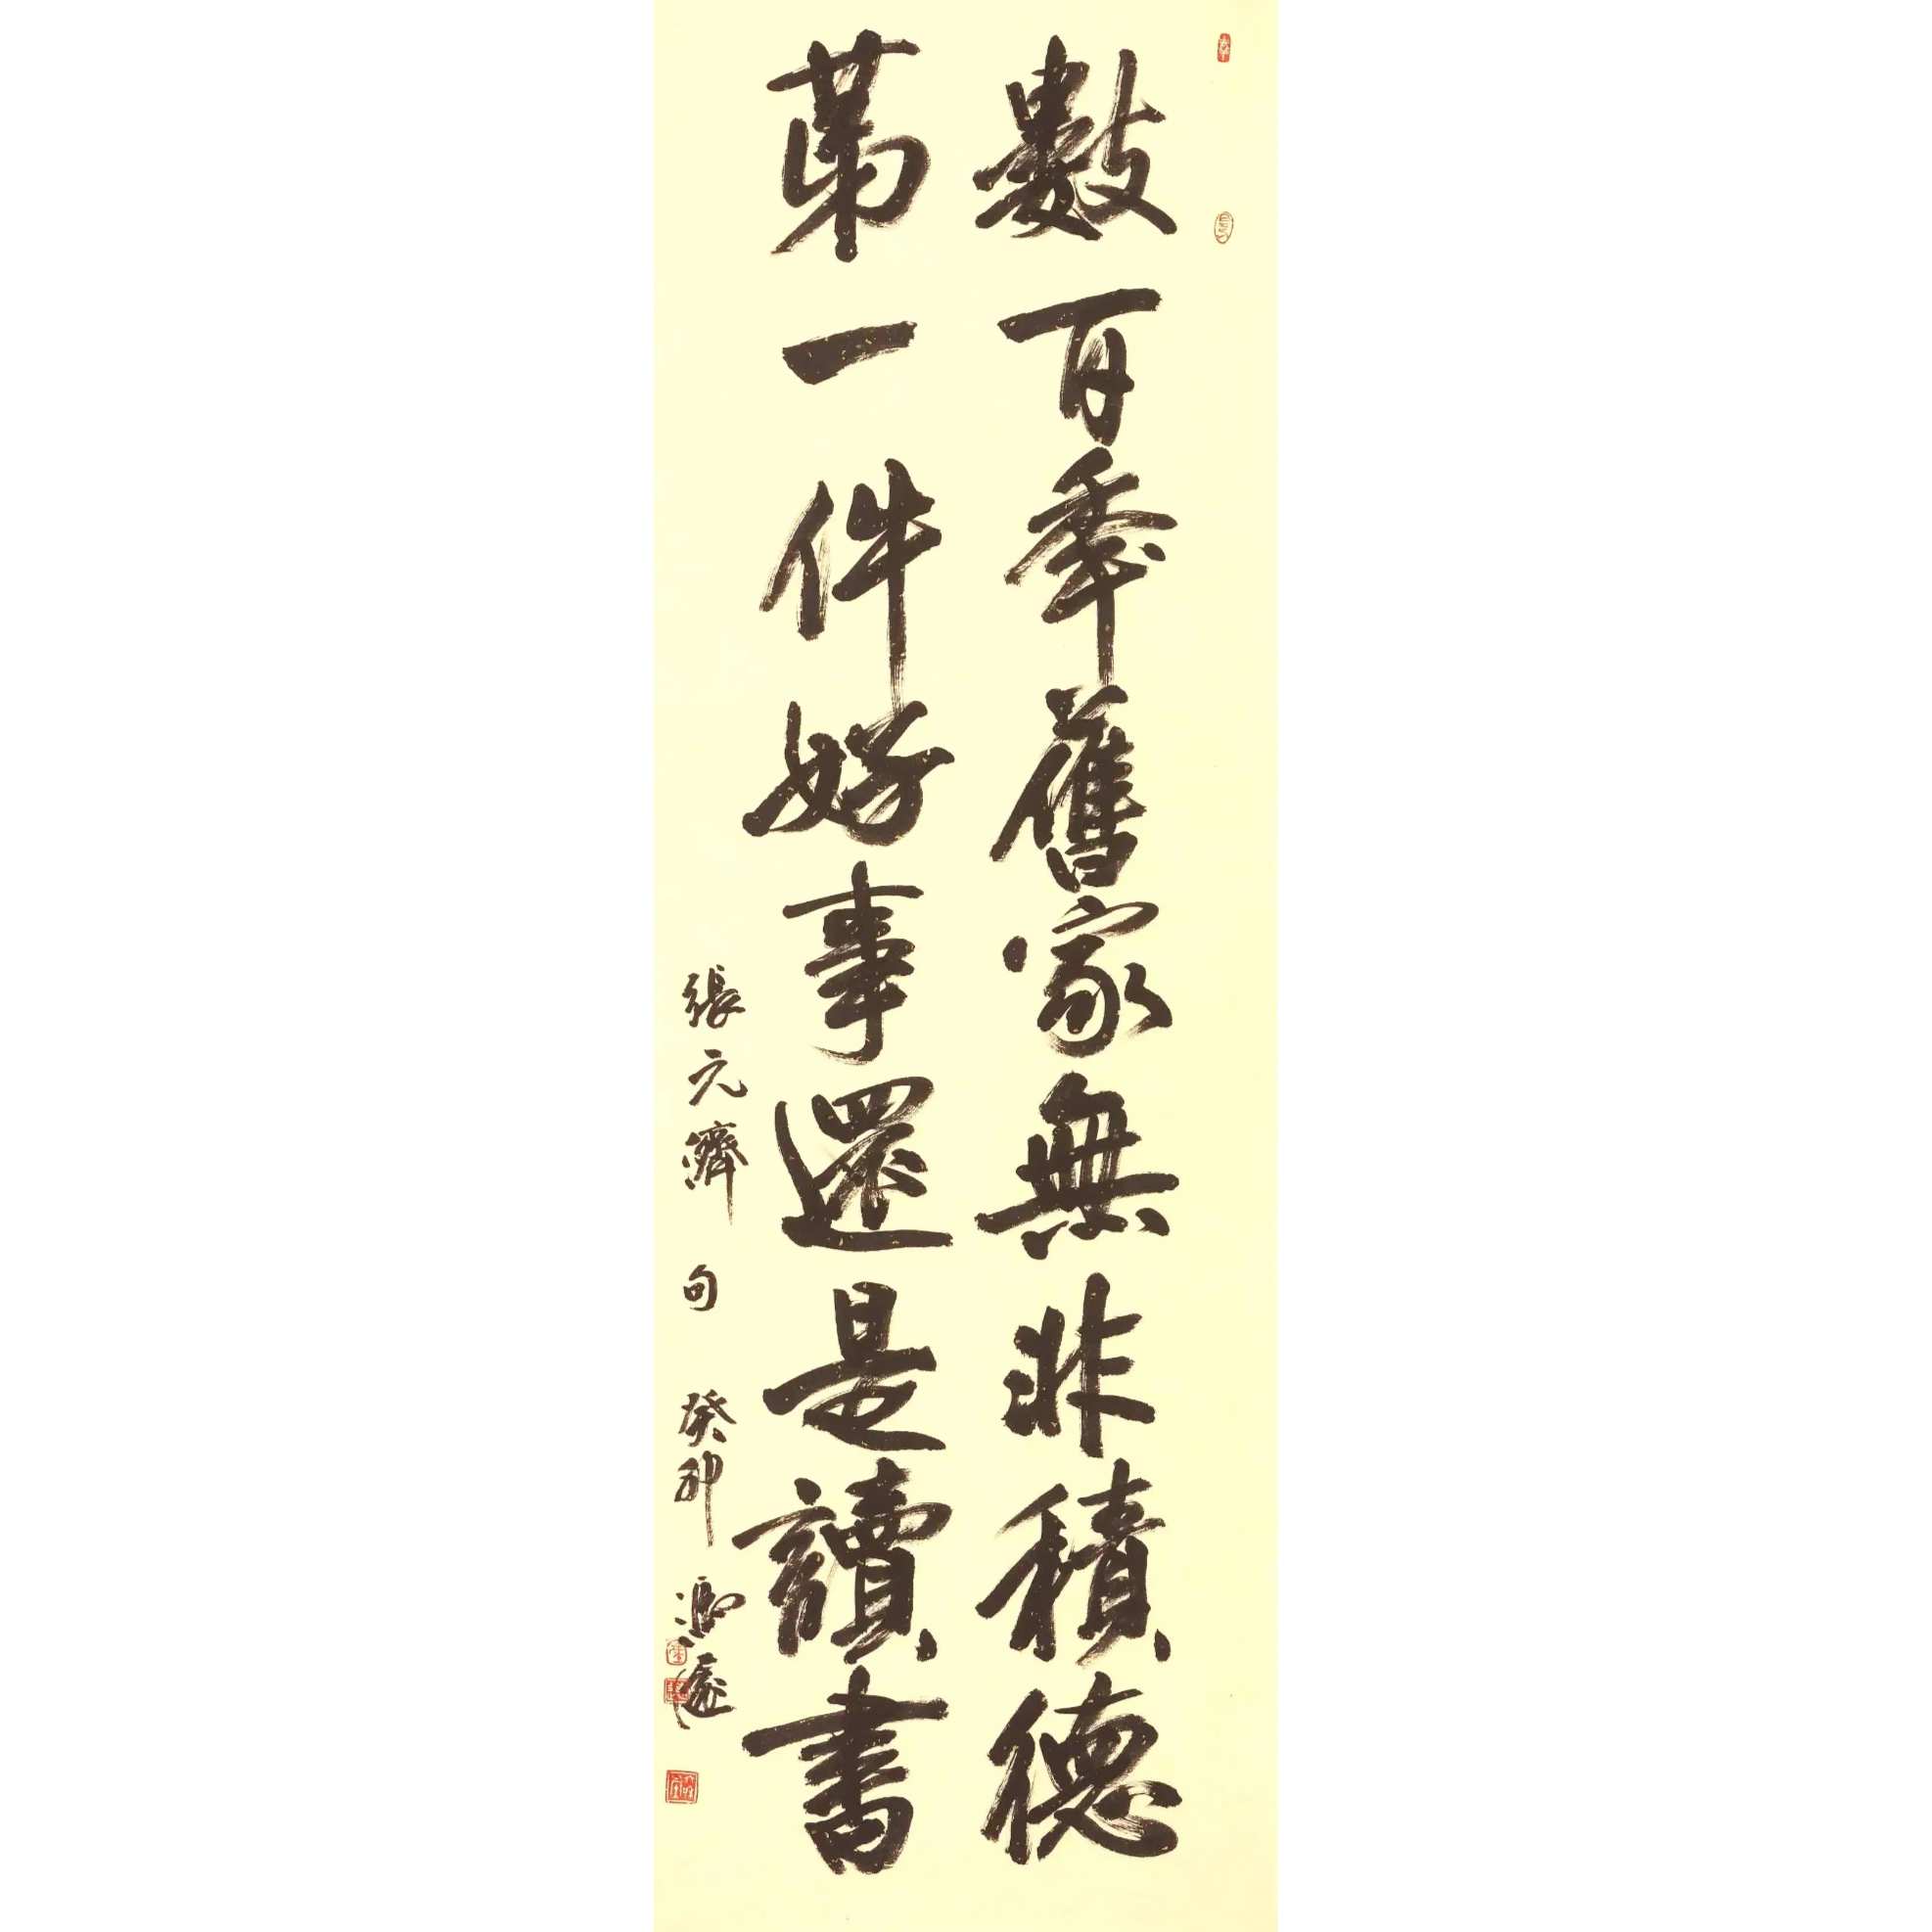 數百年舊家無非積德
第一件好事還是讀書
張元濟句 癸卯